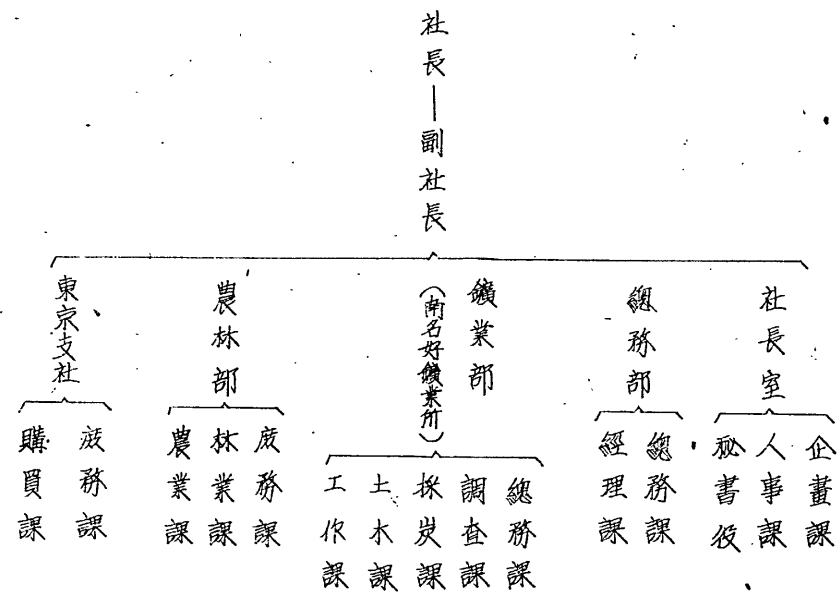 社長―副社長
社長室
企畫課
人事課
秘書役
總務部
總務課
經理課
鑛業部
(南名好鑛業所)
總務課
調査課
採炭課
土木課
工作課
農林部
庶務課
林業課
農業課
東京支社
庶務課
購買課